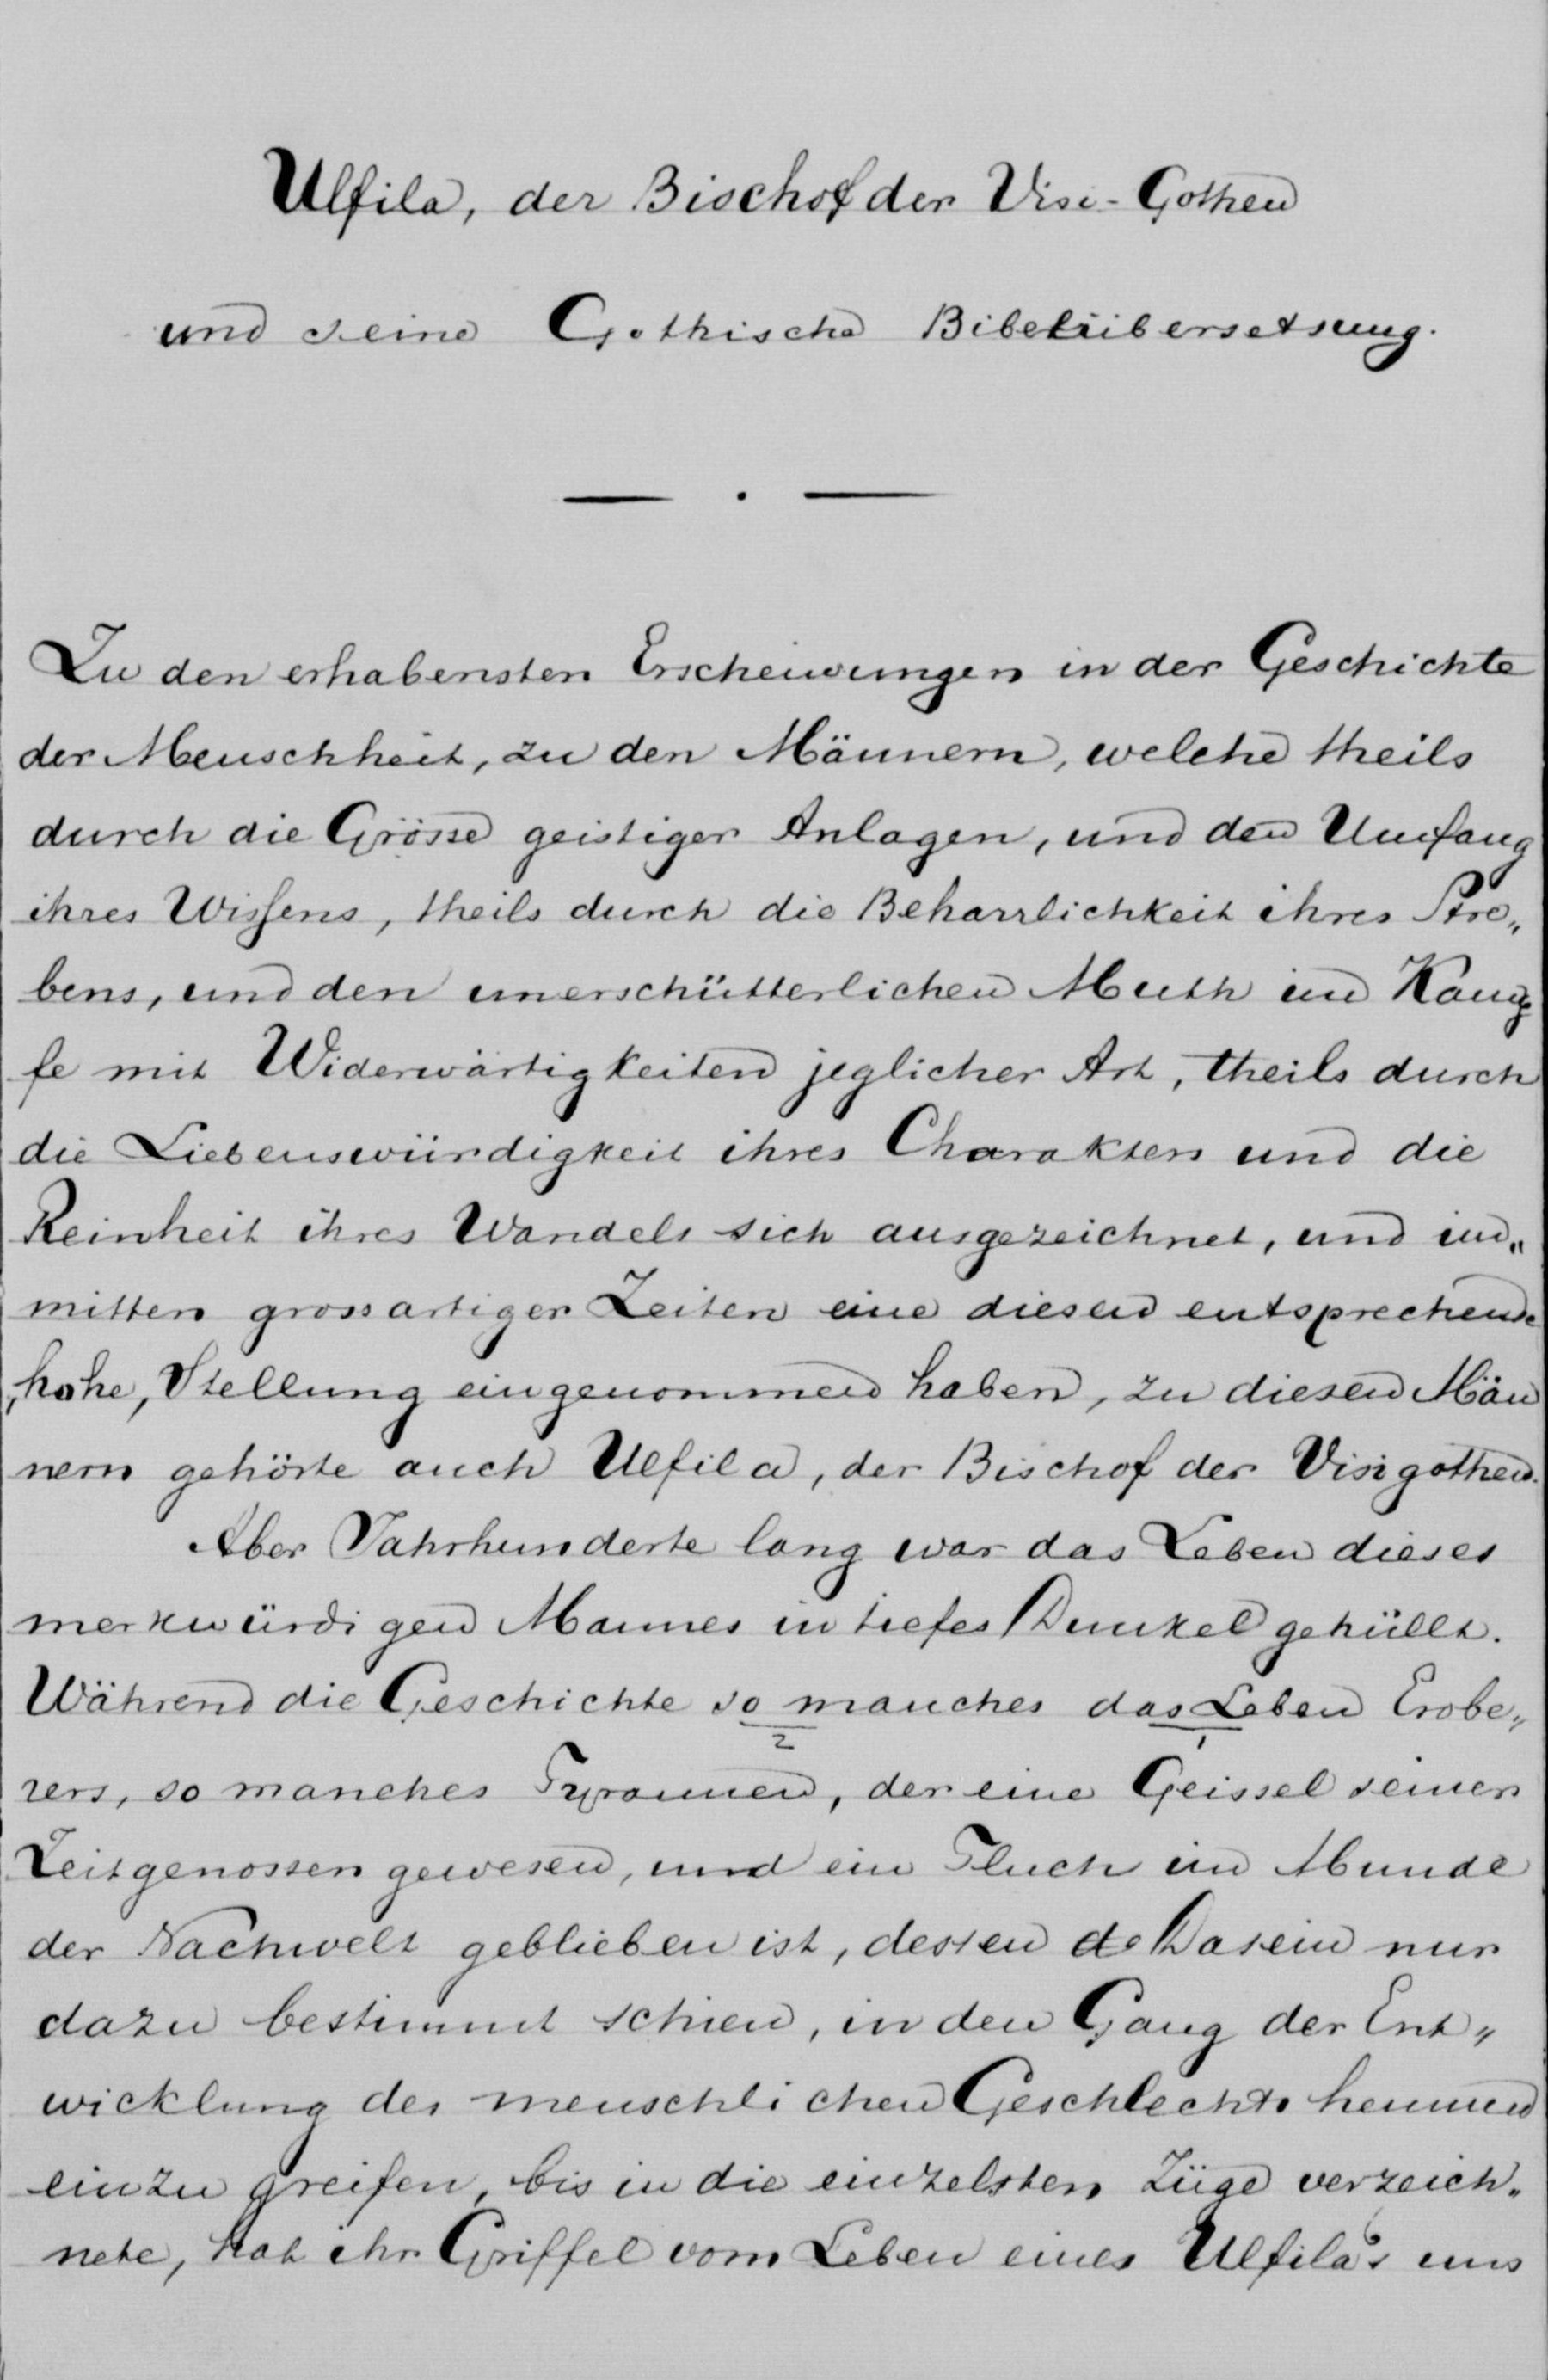 Ulfila, der Bischof der Visi-Gothen
und seine Gothische Bibelübersetzung.
Zu den erhabensten Erscheinungen in der Geschichte
der Menschheit, zu den Männern, welche theils
durch die Grösse geistiger Anlagen, und den Umfang
ihres Wissens, theils durch die Beharrlichkeit ihres Stre„
bens, und den unerschütterlichen Muth im Kamp
fe mit Widerwärtigkeiten jeglicher Art, theils durch
die Liebenswürdigkeit ihres Charakters und die
Reinheit ihres Wandels sich ausgezeichnet, und in„
mitten grossartiger Zeiten eine diesen entsprechende
, hohe, Stellung eingenommen haben, zu diesen Män
nern gehörte auch Ulfila, der Bischof der Visigothen.
Aber Jahrhunderte lang war das Leben dieses
merkwürdigen Mannes in tiefes Dunkel gehüllt.
Während die Geschichte so manches das Leben Erobe„
2 1
rers, so manches Tyrannen, der eine Geissel seiner
Zeitgenossen gewesen, und ein Fluch im Munde
der Nachwelt geblieben ist, dessen de Dasein nur
dazu bestimmt schien, in den Gang der Ent„
wicklung des menschlichen Geschlechts hemmend
einzu greifen, bis in die einzelsten Züge verzeich„
nete, hat ihr Griffel vom Leben eines Ulfila's uns